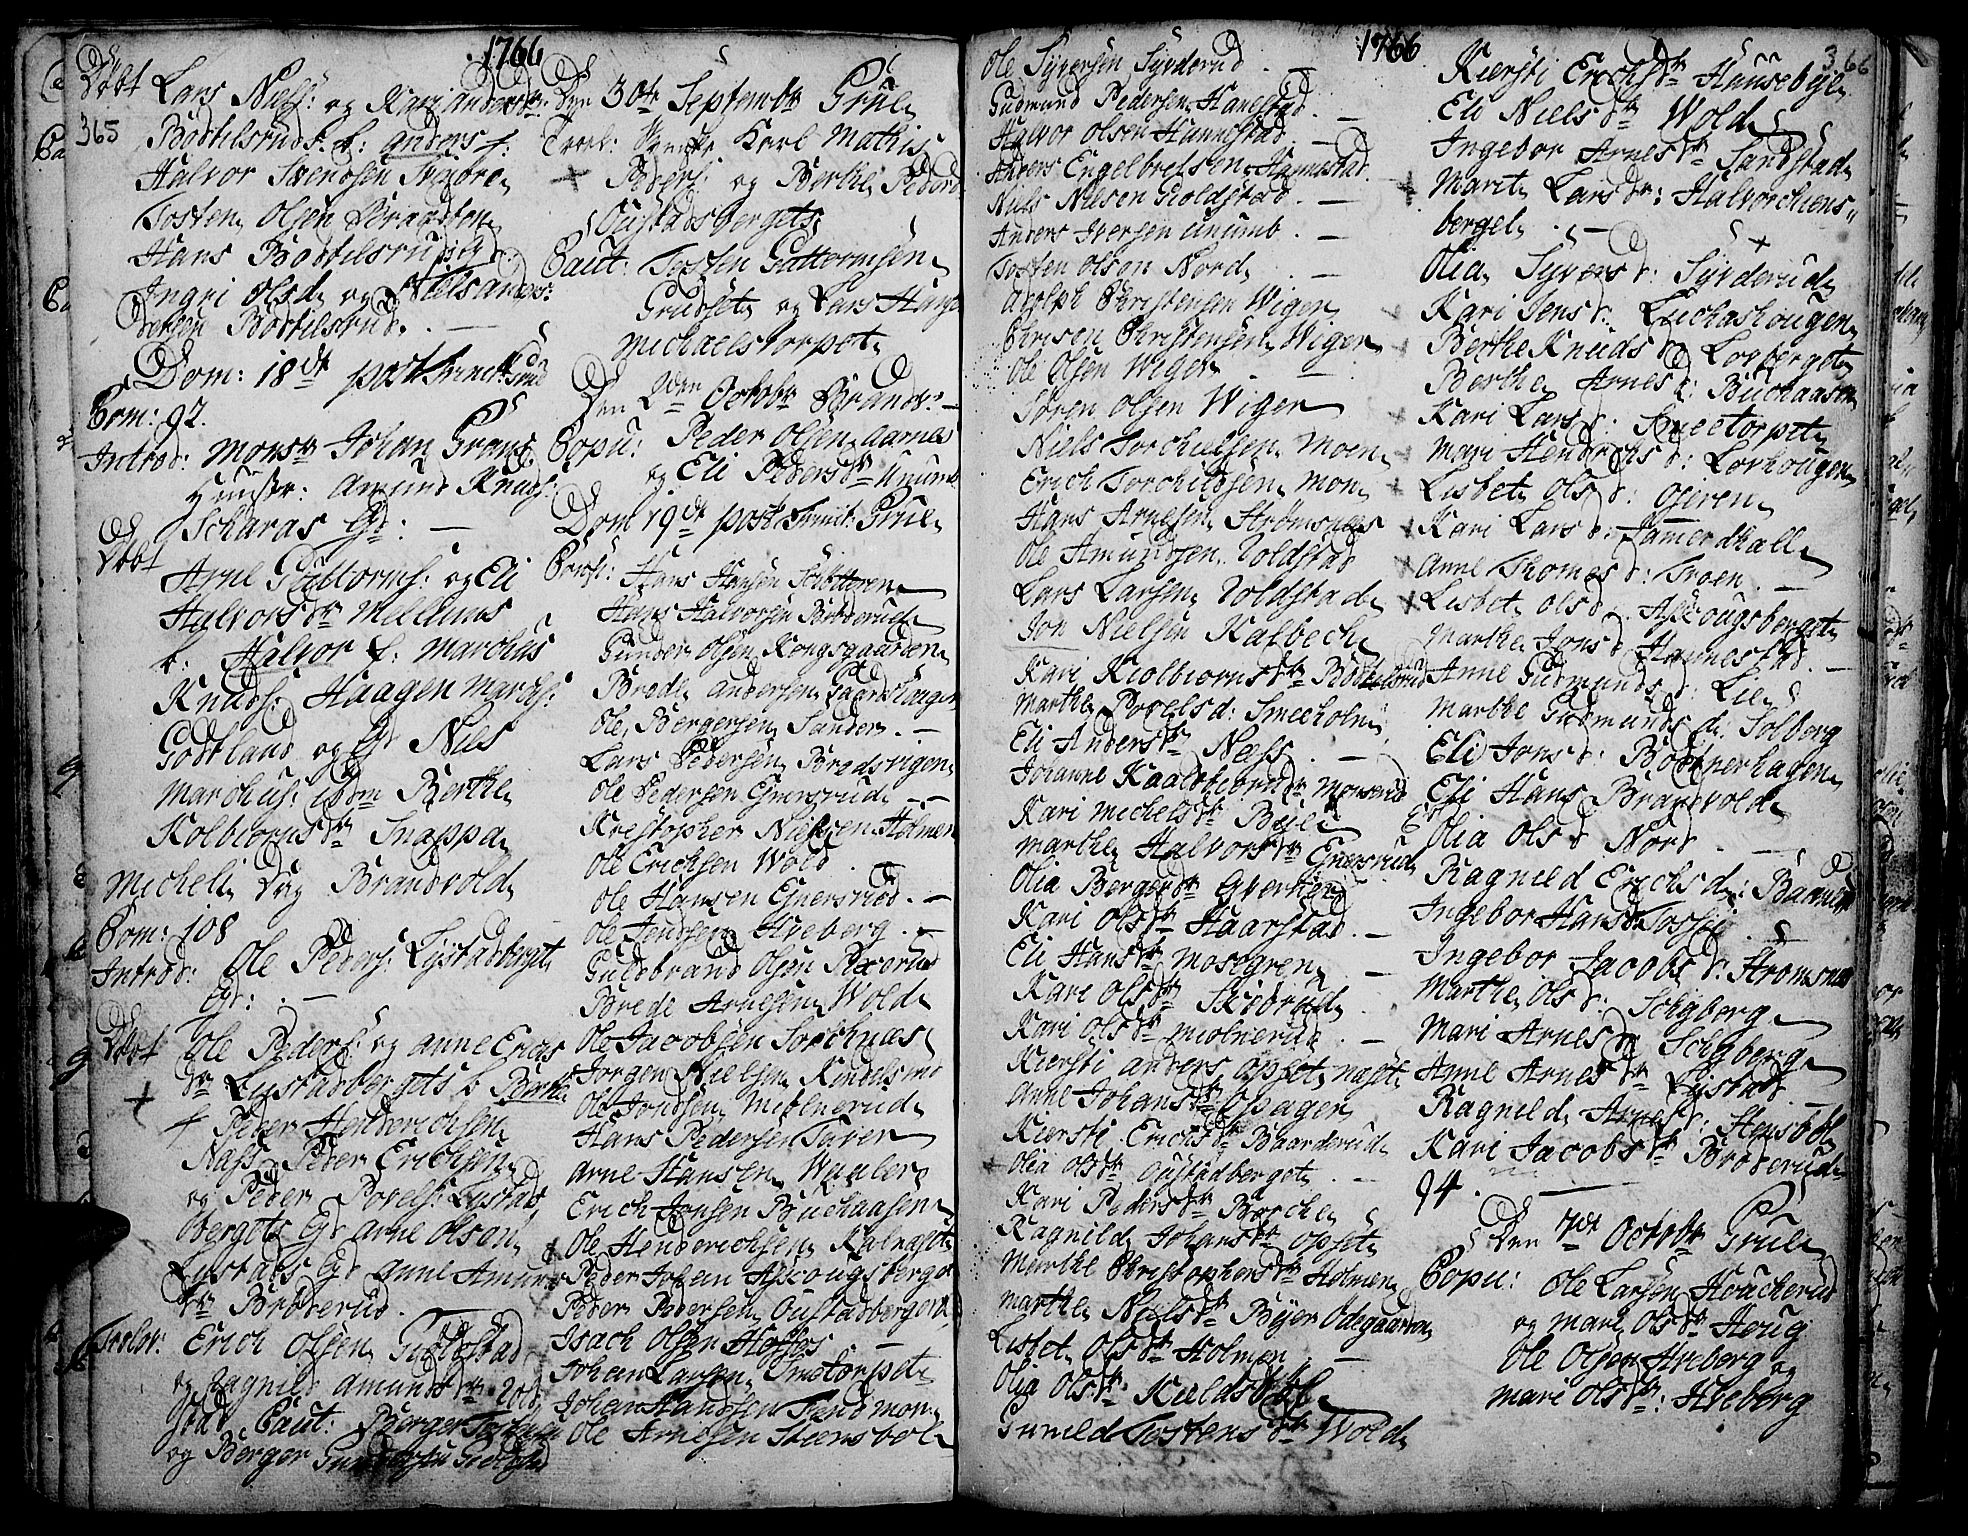 1766
Døbt Lars Niels: og Kari Anders dr
365
Bottilsruds b: Anders f:
Halvor Svendsen
Tosten Olsen Braaten
Hans Bottilsrud
Ingri Olsd og Niels Anders
Bottilsrud. —
Dom: 18de post Trinit:
Com: 92.
Introd: Monsr Johan Grans
Hustr: Amund Knuds:
Scharas Qd: —
Døbt
Arne Guttorms: og Eli
Halvorsdr Mellems
b: Halvor f: Marchus
Knuds: Haagen Marchs:
Godtland og Niels
Marchus: Berthe
Kolbiorns dr Snappa
Micheli Dag Brandvold
Com: 108
Introd: Ole Peders: Lystadberget
Qd: . —
Døbt Ole Peders: og Anne Erics
dr Lystadbergets b Berthe
+
f Peder Henderichsen
Næss Peder Erichsen
og Peder Povels: Lystad
bergets Arne Olsen
Lystads Anne Amunds
dr Broderud.
Trolov: Erich Olsen Guldstad
og Ragnild Amunds dr Vold
stad Caut: Berger
og Berger
Den 30te Septembr Grue
Karl Mathis
+ Peders: og Berthe Peders
Oustadsbergets
Caut: Tosten Guttormsen
Grudset og Lars Hans
Michaelstorpet
Den 2den Octobr Brandv: —
Copu: Peder Olsen Aarnes
og Eli Peders dr Unumb
Dom 19de post Trinit: Grue
Conf: Hans Hansen Schotteren
Hans Halvorsen Broderud
Gunder Olsen Kongsgaarden
Brede Andersen Gaardshougen
Ole Bergersen Sander . —
Lars Pedersen Bredsrigen
Ole Pedersen Enersrud . —
Kristopher Nielsen Holmen
Ole Erichsen Wold .
Ole Hansen Enersrud . —
Ole Jensen Hveberg . —
Guldbrand Olsen
Brede Arnesen Wold
Ole Jacobsen Sorknæs
Jørgen Nielsen Kindelsrud
Ole Jondsen Miølnerud
Hans Pedersen Tøver
Arne Hansen Waaler
Erich Jonsen Buchaasen
+ Ole Henderichsen Kalnæset
Peder Johan Aschougsberget
Peder Pedersen Oustadberget
Isach Olsen Hoffos —
Johan Larsen Smetorpet
Johan Handsen Fendmon
Ole Arnesen Steensbøl
1766
Ole Syversen Syrderud . —
Gudmund Pedersen Hanestad
Halvor Olsen Hannestad . —
Anders Engelbretsen Hannestad
Niels Nielsen Goldstad . —
Anders Iversen Unumb . —
Tosten Olson Nord . —
Adolph Christensen Wiger
Chrisen Christensen Wiger
Ole Olsen Wiger .
Søren Olsen Wiger
Niels Torchielsen Moen
Erich Torchildsen Mon
Hans Arnesen Strømsnæs
Ole Amundsen Voldstad
Lars Larsen Voldstad
Jon Nielsen Kalbech
Kari Kiolbiorns dr Bottilsrud
Marthe Povels d: Smeeholm
Eli Anders dr Næss . —
Johanne Kaaldbiorns dr Monsrud
Kari Michels dr Byer
Marthe Halvors dr Enersrud
Olia Berger dr Qverner
Kari Ols dr Haarstad . —
Eli Hans dr Mosegren . —
Kari Ols dr Skibrud
Kari Ols dr Miolnerud . —
Kiersti Anders Opset næset
Anne Johans dr Opager
Kiersti Erichs dr Baarderud
+ Olia Ols dr Oustadberget . —
Kari Peders dr Børche
Ragnild Johans dr Opset
Marthe Christophers dr Holmen
Marthe Niels dr Byer Ødegaarden
Lisbet Ols dr Holmen —
Olia Ols dr Kieldsbøl
Gunild Tostens dr Wold
366
Kiersti Erichs dr Hausebye
Eli Niels dr Wold
Ingebor Arnes dr Sandstad
+ Marit Lars dr: Halvorchiens
berget . —
Olia Syvers d: Syrderud
Kari Jens d: Luchashougen
Berthe Knuds dr Løgberget
Berthe Arnes d: Buchaasen
Kari Lars d: Smeetorpet
Mari Hendrichs d: Løvhougen
Lisbet Ols d: Osiren
Kari Lars d: Jamerdhall
Anne Thomes d: Troen —
Lisbet Ols d. Aschougsberget
Marthe Jons d Hannestad . —
Anne Gudmunds d: Lie
Marthe Gudmunds dr Solberg
Eli Jons d: Bottnerhagen
Eli Hans Brandvold
Olia Ols d Nord . —
Ragnild Erichs d: Baanerud
Ingebor Hans dr Tosse . —
Ingebor Jacobs d: Strømsnæs
Marthe Ols d: Schyberg
Mari Arnes dr Schyberg
Anne Arnes dr Lystad . —
Ragnild Arnes d: Stensbøl
Kari Jacobs dr Broderud
94. —
Den 7de Octobr Grue
Copu: Ole Larsen Houcherud
og Mari Ols dr Houg
Ole Olsen Hveberg og
Mari Ols dr: Hveberg